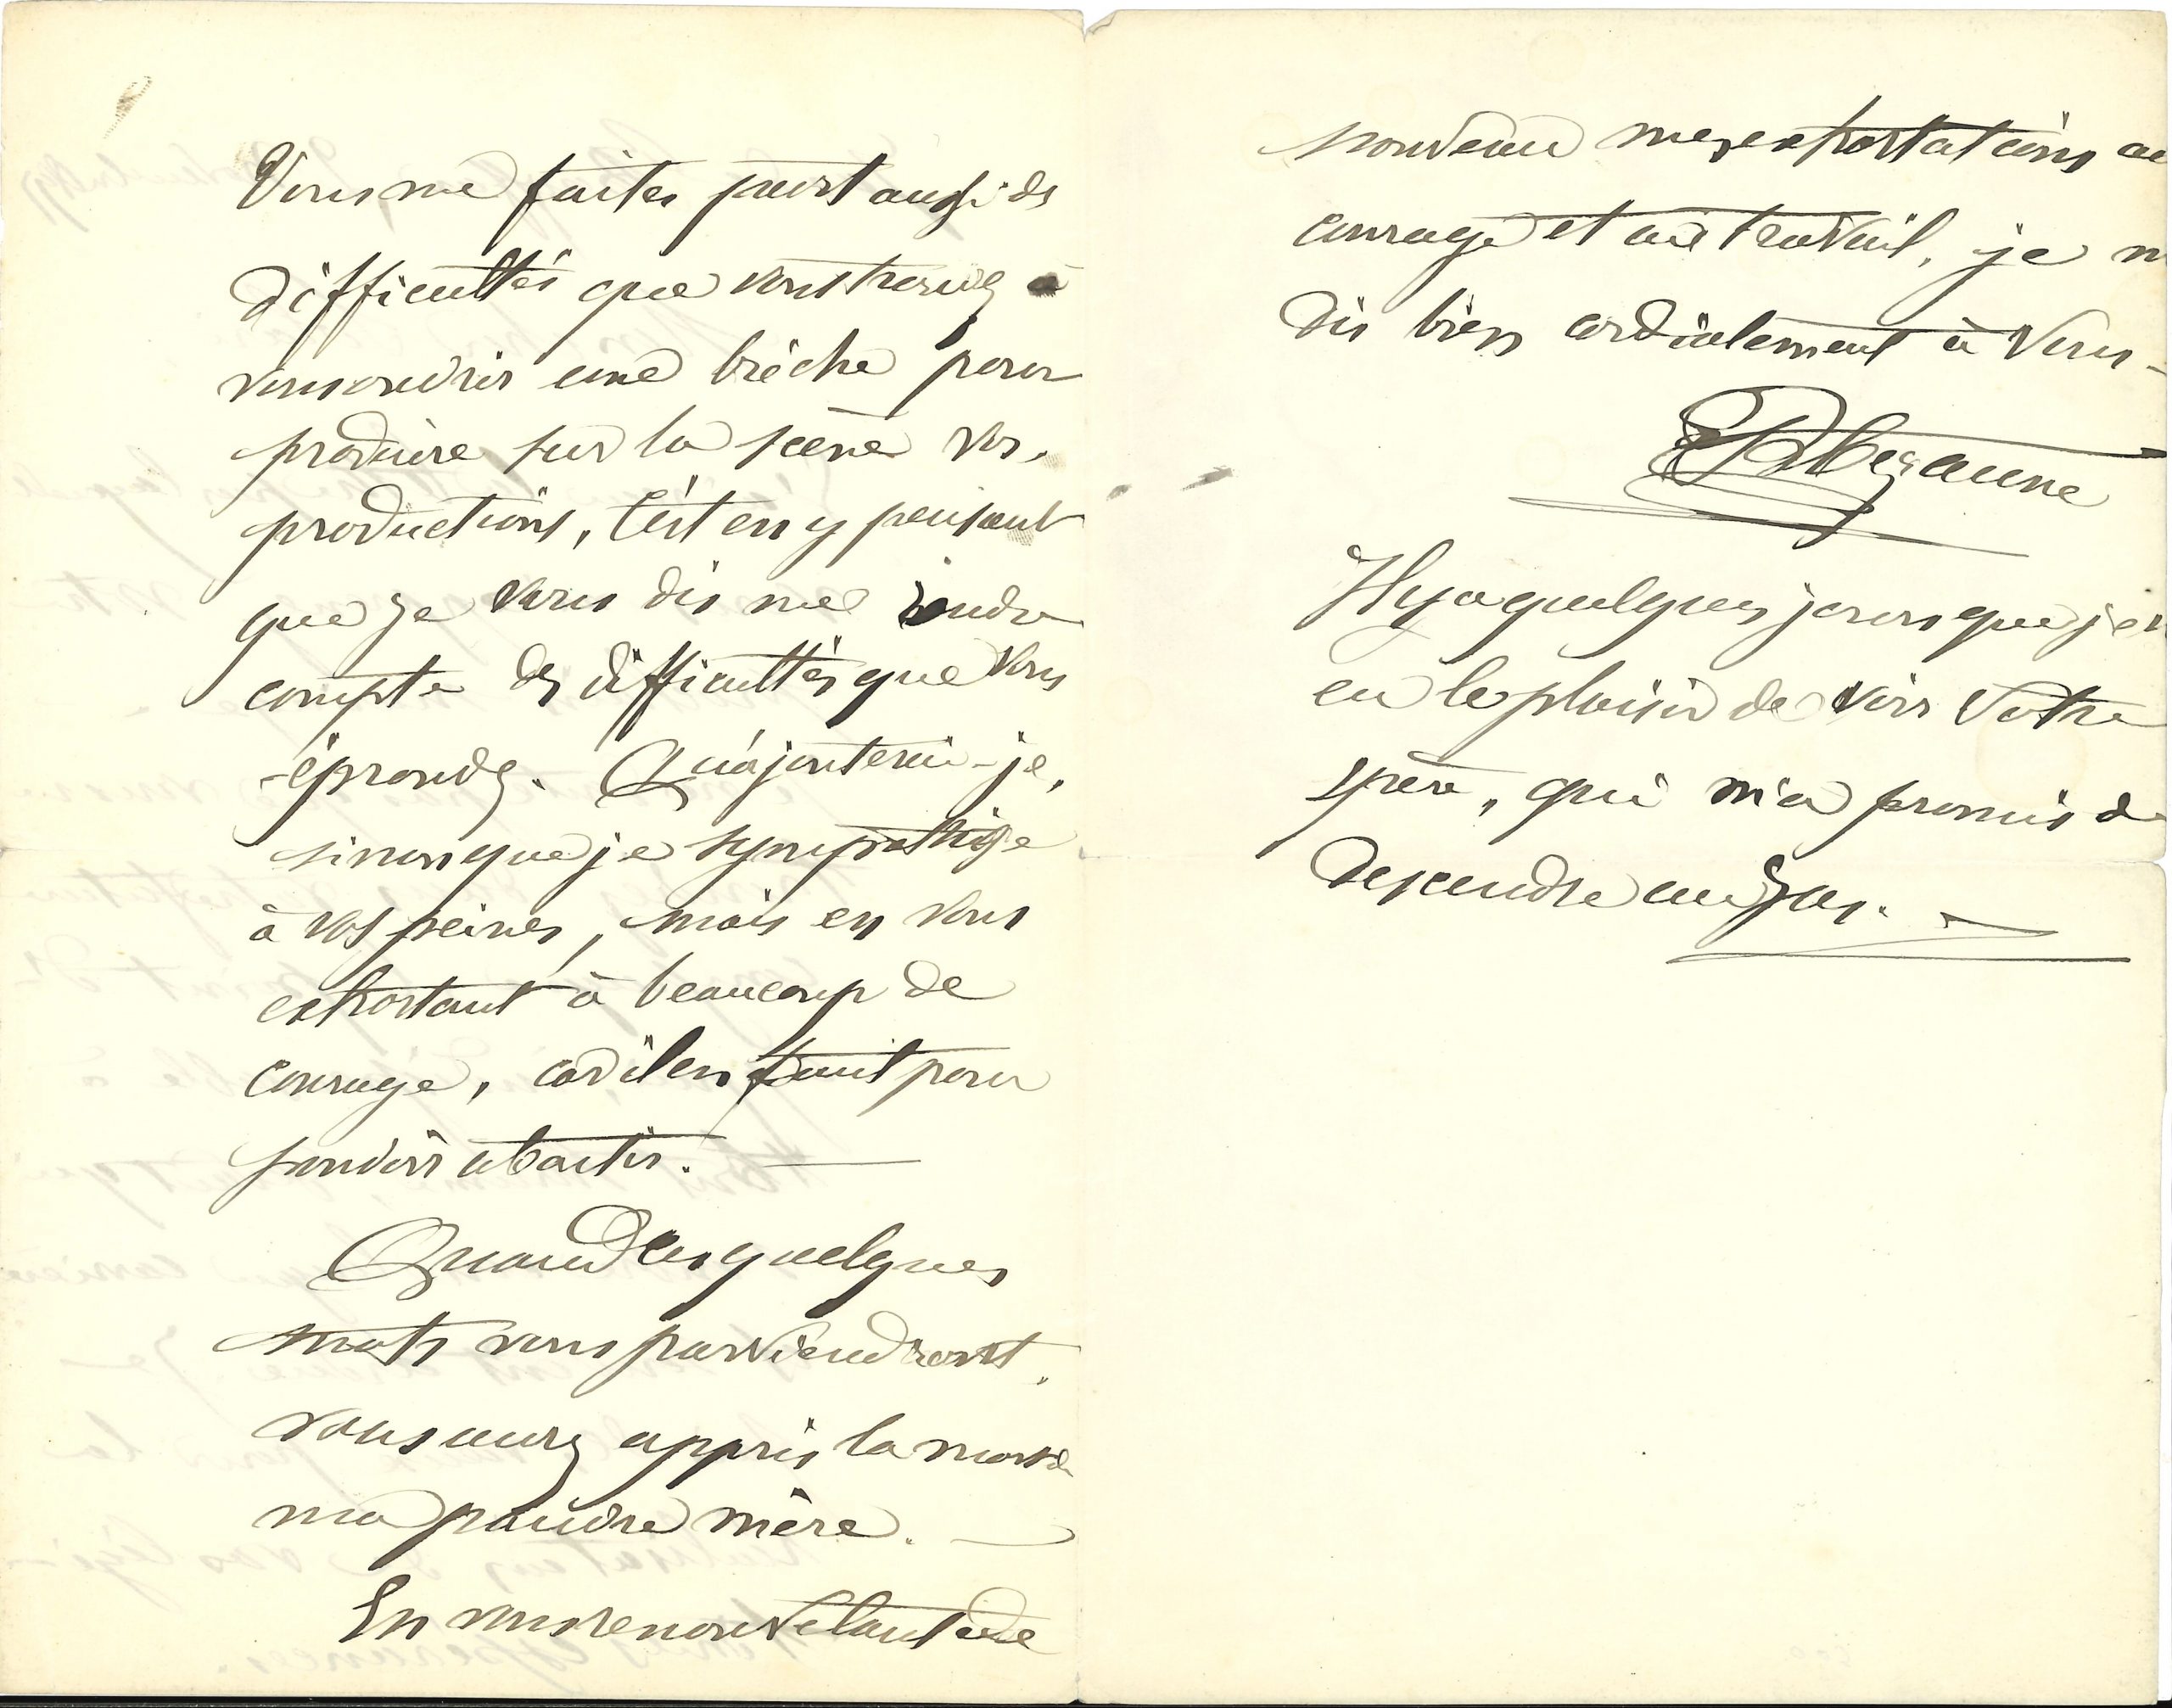 Vous me faites part aussi des
difficultés que vous trouvez à
vous ouvrir une brèche pour
produire sur la scène vos
productions, c'est en y pensant
que je vous dis me rendre
compte des difficultés que vous
éprouvez. Qu'ajouterai-je,
sinon que je sympathise
à vos peines, mais en vous
exhortant à beaucoup de
courage, car il en faut pour
pouvoir aboutir. —
Quand ces quelques
mots vous parviendront,
vous aurez appris la mort de
ma pauvre mère. —
En vous renouvelant de
nouveau mes exhortations au
courage et au travail, je m
dis bien cordialement à vous —
Il y a quelques jours que j'ai
eu le plaisir de voir votre
père, qui m'a promis de
descendre au Gas. —